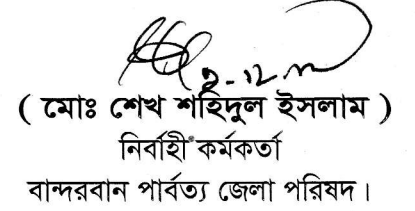 ( মোঃ শেখ শহিদুল ইসলাম )
নির্বাহী কর্মকর্তা
বান্দরবান পার্বত্য জেলা পরিষদ।